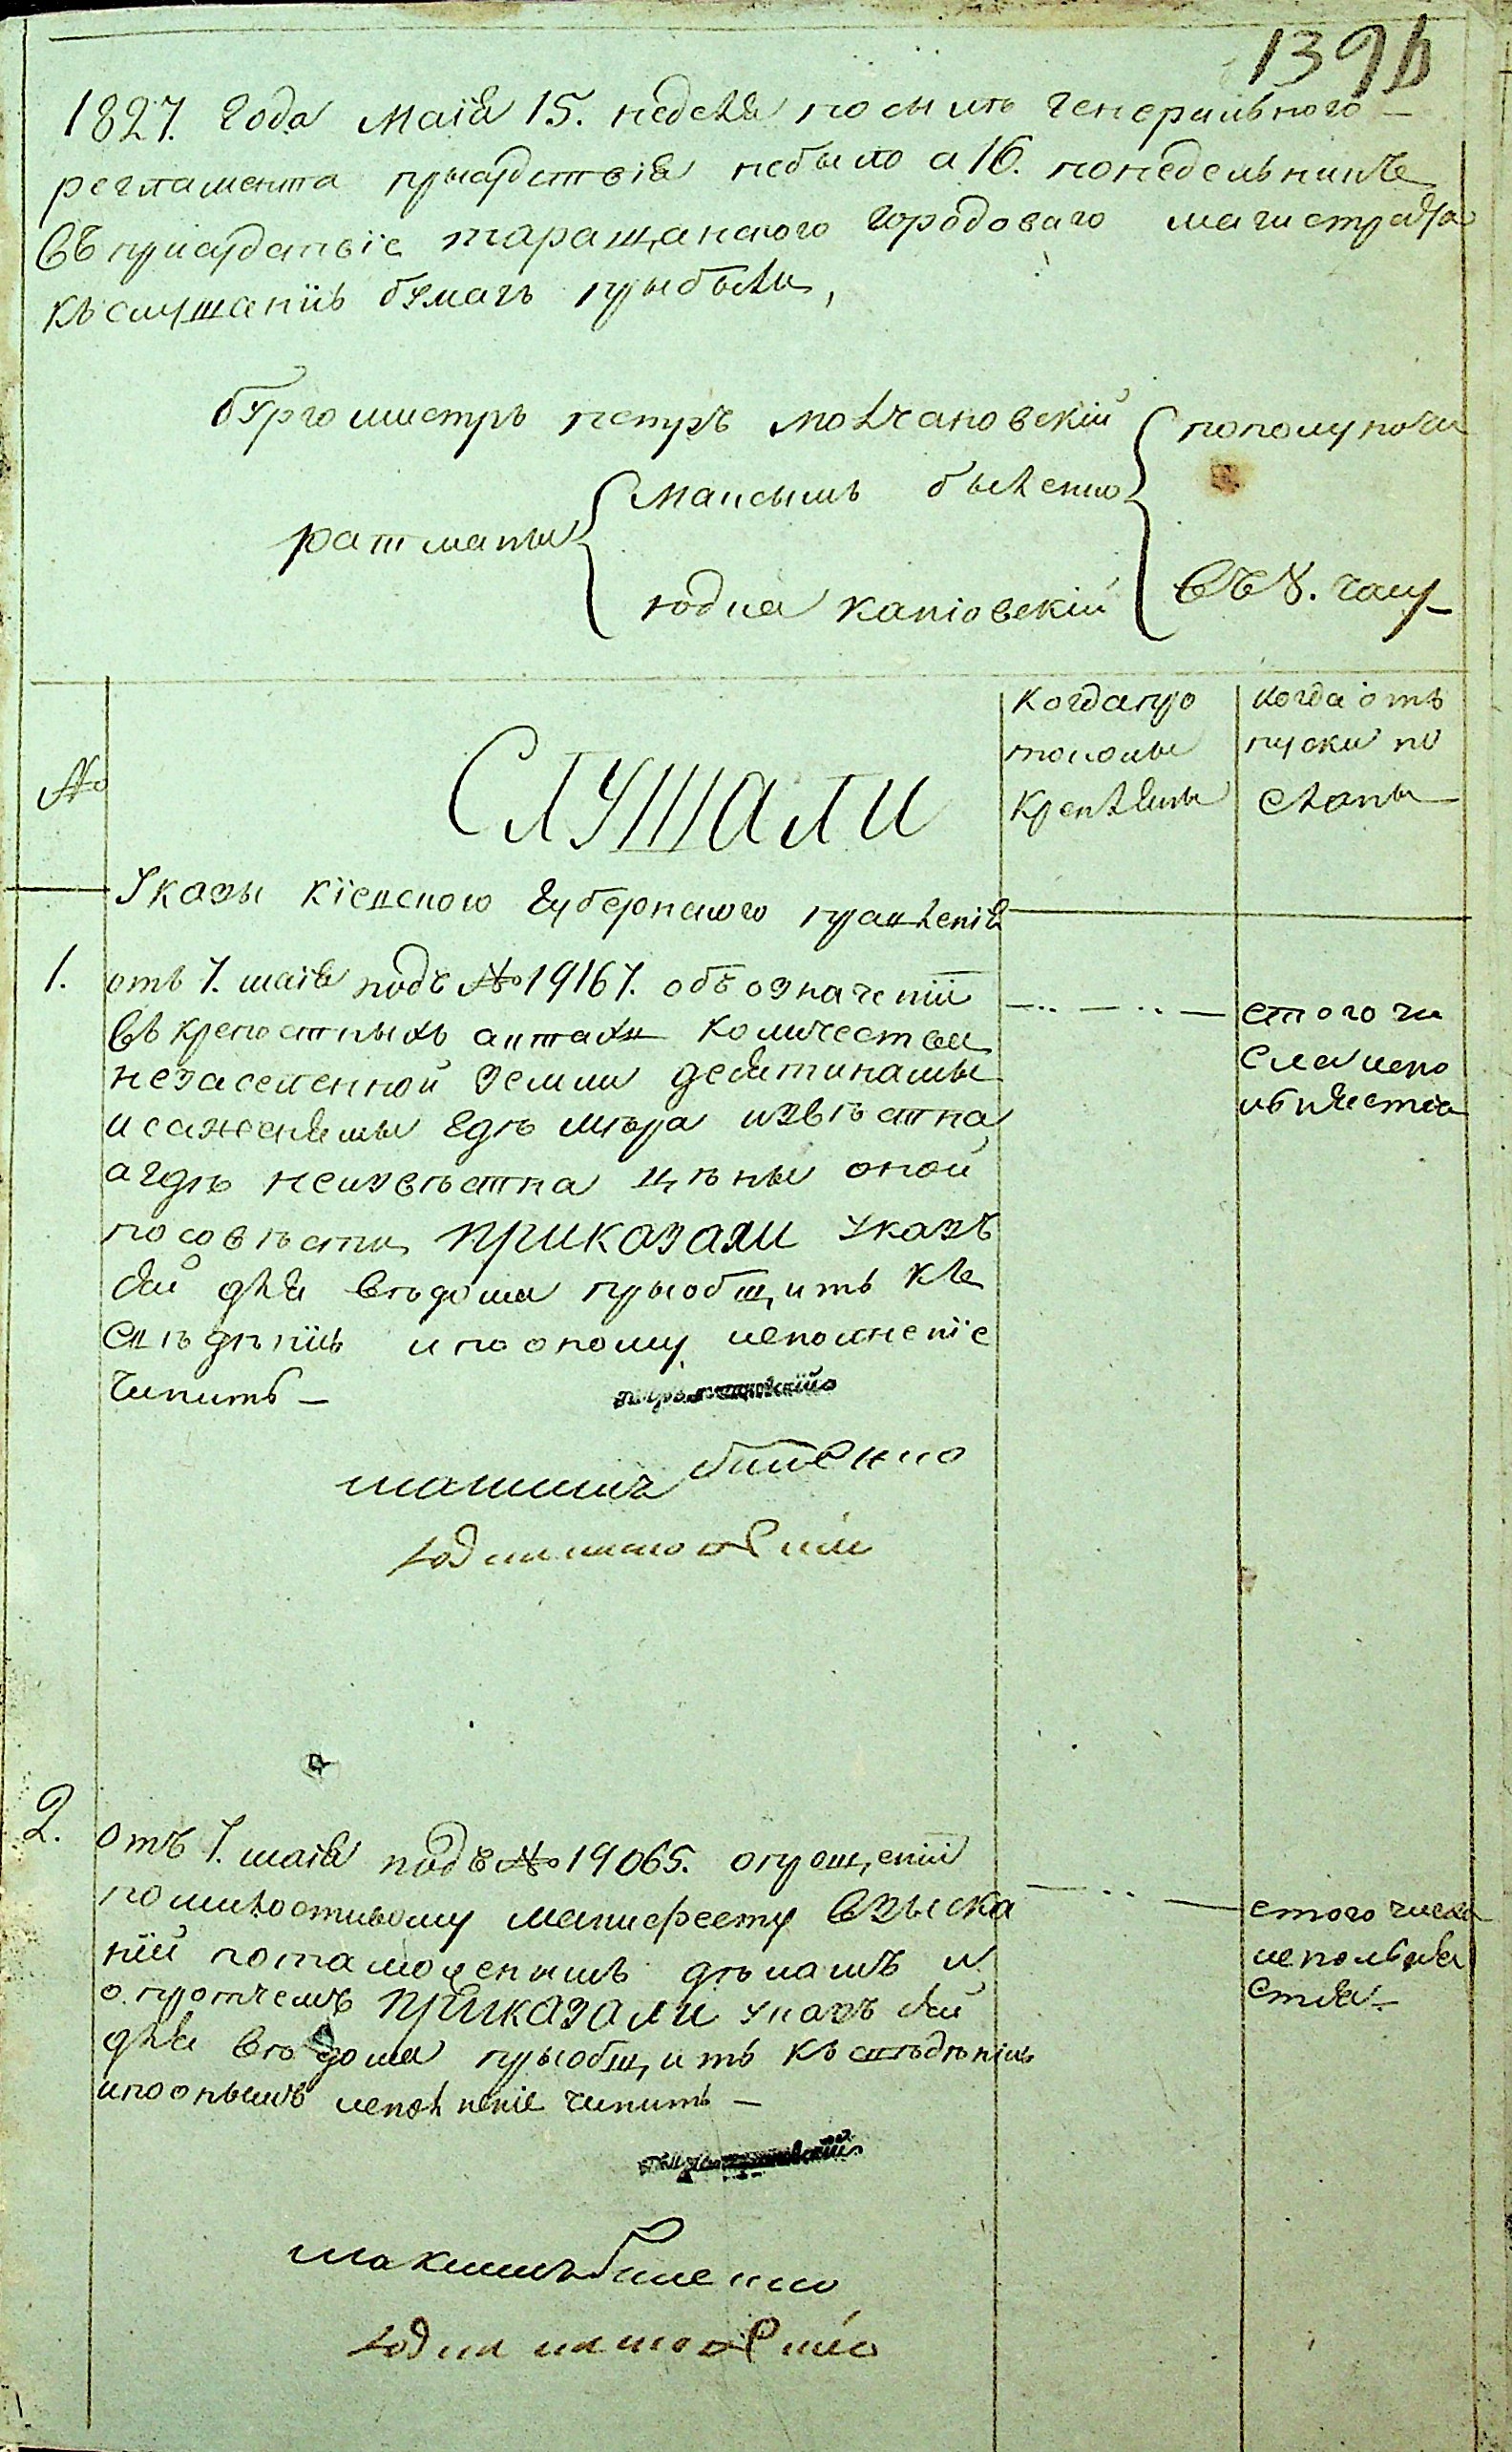 139
1827. Года маія 15. неделя по силъ генерального
регламента прысудствія небыло а 16. понедельникъ
Въ присудствіе таращанского городоваго магистрата
къ слушанію бумагъ прыбыли,
бургомистръ петръ молчановскій пополуночи
максымъ быленко
ратманы
юдка каніовскій въ 8. часу
№
Слушали
Когда про
токолы
Крепляны
когда от
пуски по
сланы
Указы кіевского губернского правленія
1. отъ 7. маія подъ № 19167. объ означеніи
въ крепостныхъ актахъ количества
незаселенной земли десятинамы
и саженямы где мѣра извѣстна
а гдѣ неизвѣстна цѣны оной
по совѣсти приказали указъ
сей для вѣдома прыобщить къ
свѣдѣнію и по оному исполненіе
Чинить —
сего чи
сла испо
максимъ биленко
2. отъ 7. маія подъ № 19065. о прощеніи
помилостивому манифесту взыска
ній по таможенымъ дѣламъ и
о протчемъ приказали указъ сей
для вѣдома прыобщить къ свѣдѣнію
и по онымъ исполненіе чинить —
сего числа
максимъ биленко